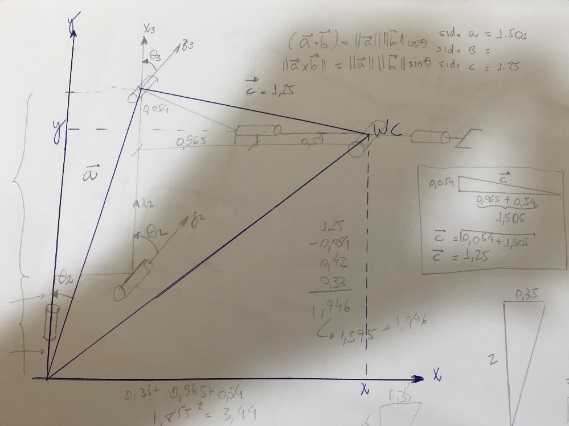 y
x₃
z₃
θ₃
(a⃗·b⃗) = ||a⃗|| ||b⃗|| cosθ
||a⃗×b⃗|| = ||a⃗|| ||b⃗|| sinθ
side a = 1.501
side B =
side c = 1.25
c⃗ = 1,25
0,054
y
WC
0,965
0,54
a⃗
x₂
θ₂
z₂
θ₂
0,054
c⃗
0,965 + 0,54
1,505
c⃗ = √0,054 + 1,505
c⃗ = 1,25
1,25
-0,054
0,42
0,33
1,946
1,595
1,946
0,35
2
x
x
0,35 + 0,965 + 0,54
1,855² = 3,44
0,35